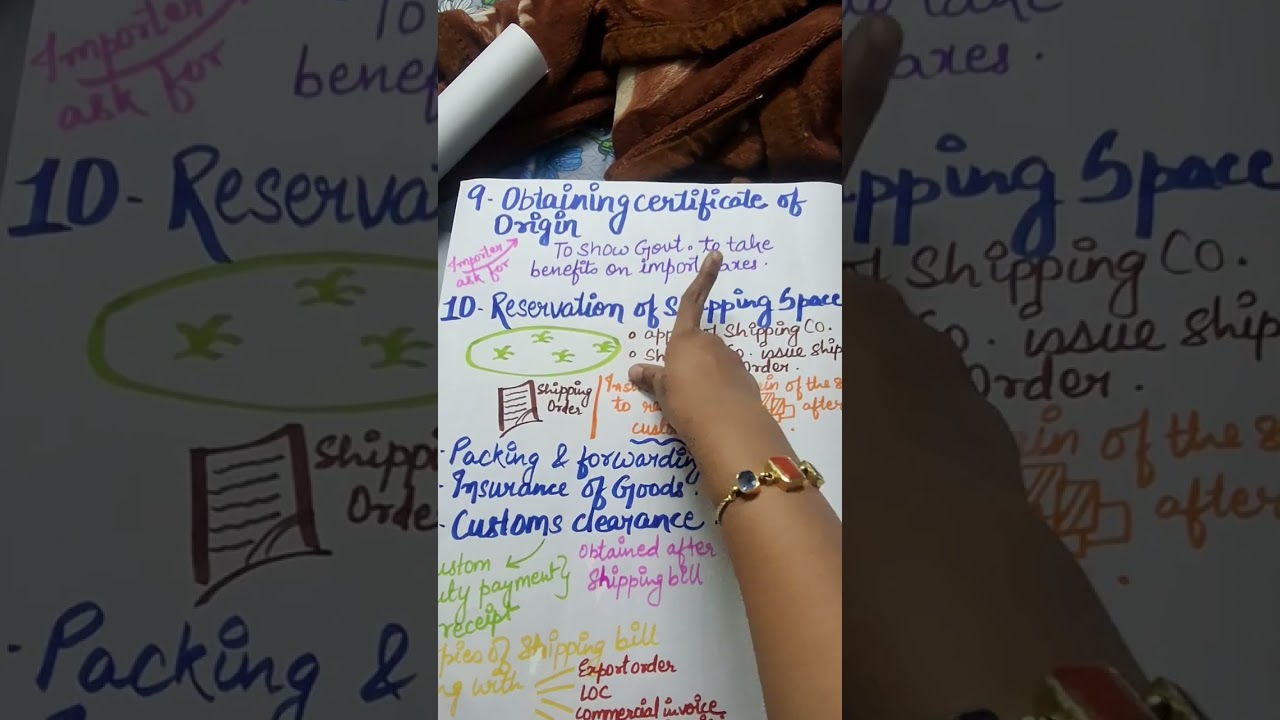 9. Obtaining certificate of
Origin
Importer
ask for
To show Govt. to take
benefits on import taxes.
10- Reservation of Shipping Space
Shipping Co.
Co. issue ship
Order.
Shipping
Order
of the
to
after
Packing & forwarding
- Insurance of Goods.
- Customs clearance.
payment
receipt
Obtained after
Shipping bill
of Shipping bill
with
Export order
LOC
Commercial invoice